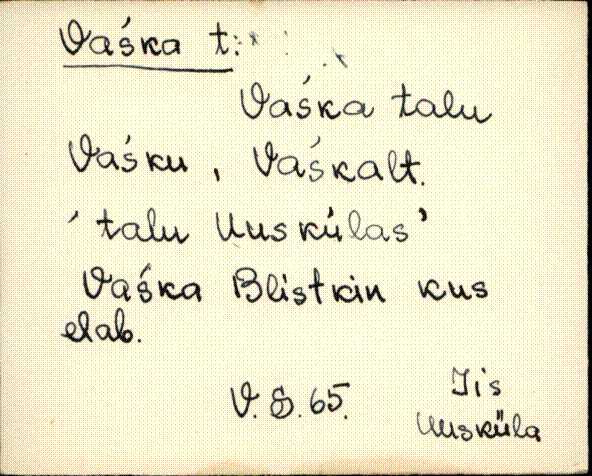 Vaśka t:
Vaśka talu
Vaśku, Vaśkalt.
'talu Uuskülas'
Vaśka Blistkin kus
elab.
V. S. 65. Iis
Uusküla